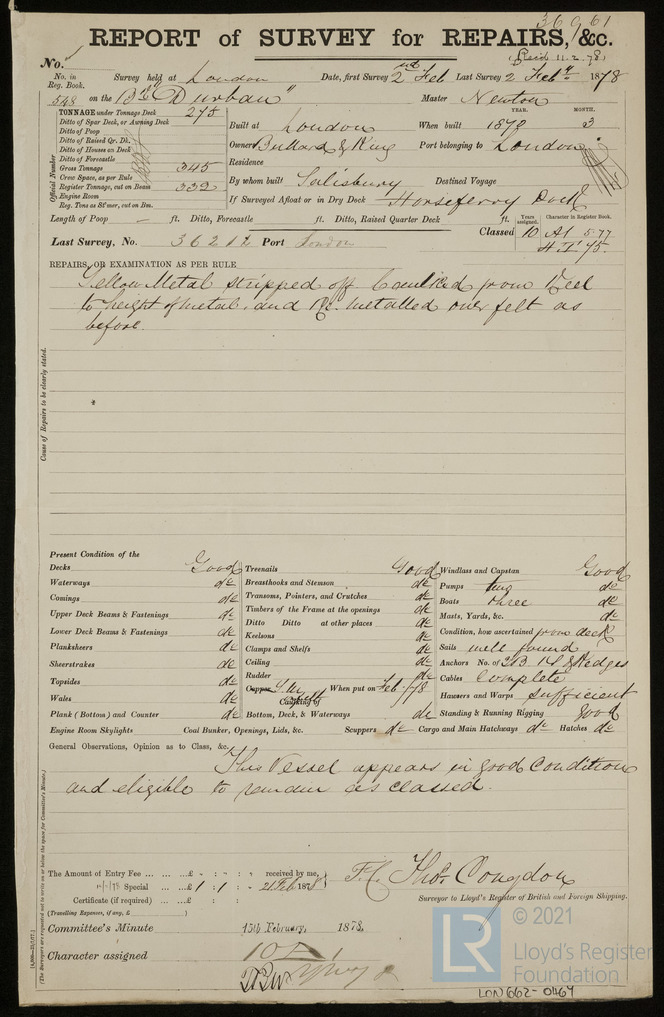 36961
REPORT of SURVEY for REPAIRS, &c.
No. 1
(Recd 11.2.78)
No. in Reg. Book. Survey held at London Date, first Survey 2nd Feb Last Survey 2 Feby 1878
548 on the "Durban" Master Newton
TONNAGE under Tonnage Deck 275
Ditto of Spar Deck, or Awning Deck
Ditto of Poop
Ditto of Raised Qr. Dk.
Ditto of Houses on Deck
Ditto of Forecastle
Gross Tonnage 345
Crew Space, as per Rule
Register Tonnage, cut on Beam 332
Engine Room
Reg. Tons as St'mer, cut on Bm.
Official Number
YEAR. MONTH.
Built at London When built 1873 3
Owners Bullard & King Port belonging to London
Residence
By whom built Salisbury Destined Voyage
If Surveyed Afloat or in Dry Dock Horseferry Dock
Length of Poop - ft. Ditto, Forecastle ft. Ditto, Raised Quarter Deck ft.
Years assigned. Character in Register Book.
Classed 10 A1 5.77
Last Survey, No. 36212 Port London
REPAIRS, OR EXAMINATION AS PER RULE
Yellow Metal stripped off Caulked from Keel
to height of metal and Re. metalled over felt as
before.
Cause of Repairs to be clearly stated.
Present Condition of the
Decks Good
Waterways do
Comings do
Upper Deck Beams & Fastenings do
Lower Deck Beams & Fastenings do
Planksheers do
Sheerstrakes do
Topsides do
Wales do
Plank (Bottom) and Counter do
Treenails Good
Breasthooks and Stemson do
Transoms, Pointers, and Crutches do
Timbers of the Frame at the openings do
Ditto Ditto at other places do
Keelsons do
Clamps and Shelfs do
Ceiling do
Rudder do
Copper When put on Feb /78
Caulking of
Bottom, Deck, & Waterways do
Windlass and Capstan Good
Pumps two do
Boats three do
Masts, Yards, &c. do
Condition, how ascertained from deck
Sails well found
Anchors No. of 2B 1S & Kedges
Cables Complete
Hawsers and Warps sufficient
Standing & Running Rigging good
Engine Room Skylights Coal Bunker, Openings, Lids, &c. Scuppers do Cargo and Main Hatchways do Hatches do
General Observations, Opinion as to Class, &c.
This Vessel appears in good Condition
and eligible to remain as classed.
The Amount of Entry Fee ... £ : : received by me,
Special ... £ 1 : 1 : - 21 Feb 1878
Certificate (if required) ... £
(Travelling Expenses, if any, £ )
Thos. Congdon
Surveyor to Lloyd's Register of British and Foreign Shipping.
Committee's Minute 15th February, 1878.
Character assigned 10 A 1
(The Surveyors are requested not to write on or below the space for Committee's Minute.)
© 2021
LR
Lloyd's Register
Foundation
LON662-0467